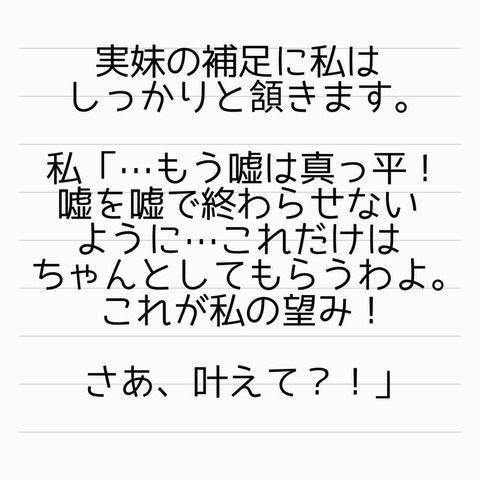 実妹の補足に私は
しっかりと頷きます。
私「…もう嘘は真っ平！
嘘を嘘で終わらせない
ように…これだけは
ちゃんとしてもらうわよ。
これが私の望み！
さあ、叶えて？！」